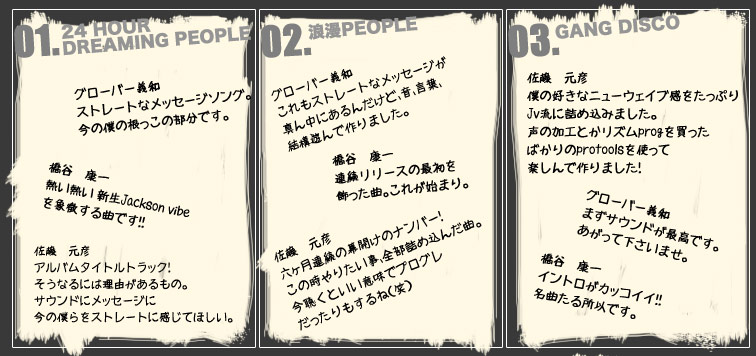 01.
24 HOUR
DREAMING PEOPLE
グローバー義和
ストレートなメッセージソング。
今の僕の根っこの部分です。
橋谷 康一
熱い熱い新生Jackson vibe
を象徴する曲です!!
佐藤 元彦
アルバムタイトルトラック!
そうなるには理由があるもの。
サウンドにメッセージに
今の僕らをストレートに感じてほしい。
02.
浪漫PEOPLE
グローバー義和
これもストレートなメッセージが
真ん中にあるんだけど、音、言葉、
結構遊んで作りました。
橋谷 康一
連続リリースの最初を
飾った曲。これが始まり。
佐藤 元彦
六ヶ月連続の幕開けのナンバー!
この時やりたい事、全部詰め込んだ曲。
今聴くといい意味でプログレ
だったりもするね(笑)
03.
GANG DISCO
佐藤 元彦
僕の好きなニューウェイブ感をたっぷり
Jv流に詰め込みました。
声の加工とかリズムprogを買った
ばかりのprotoolsを使って
楽しんで作りました!
グローバー義和
まずサウンドが最高です。
あがって下さいませ。
橋谷 康一
イントロがカッコイイ!!
名曲たる所以です。